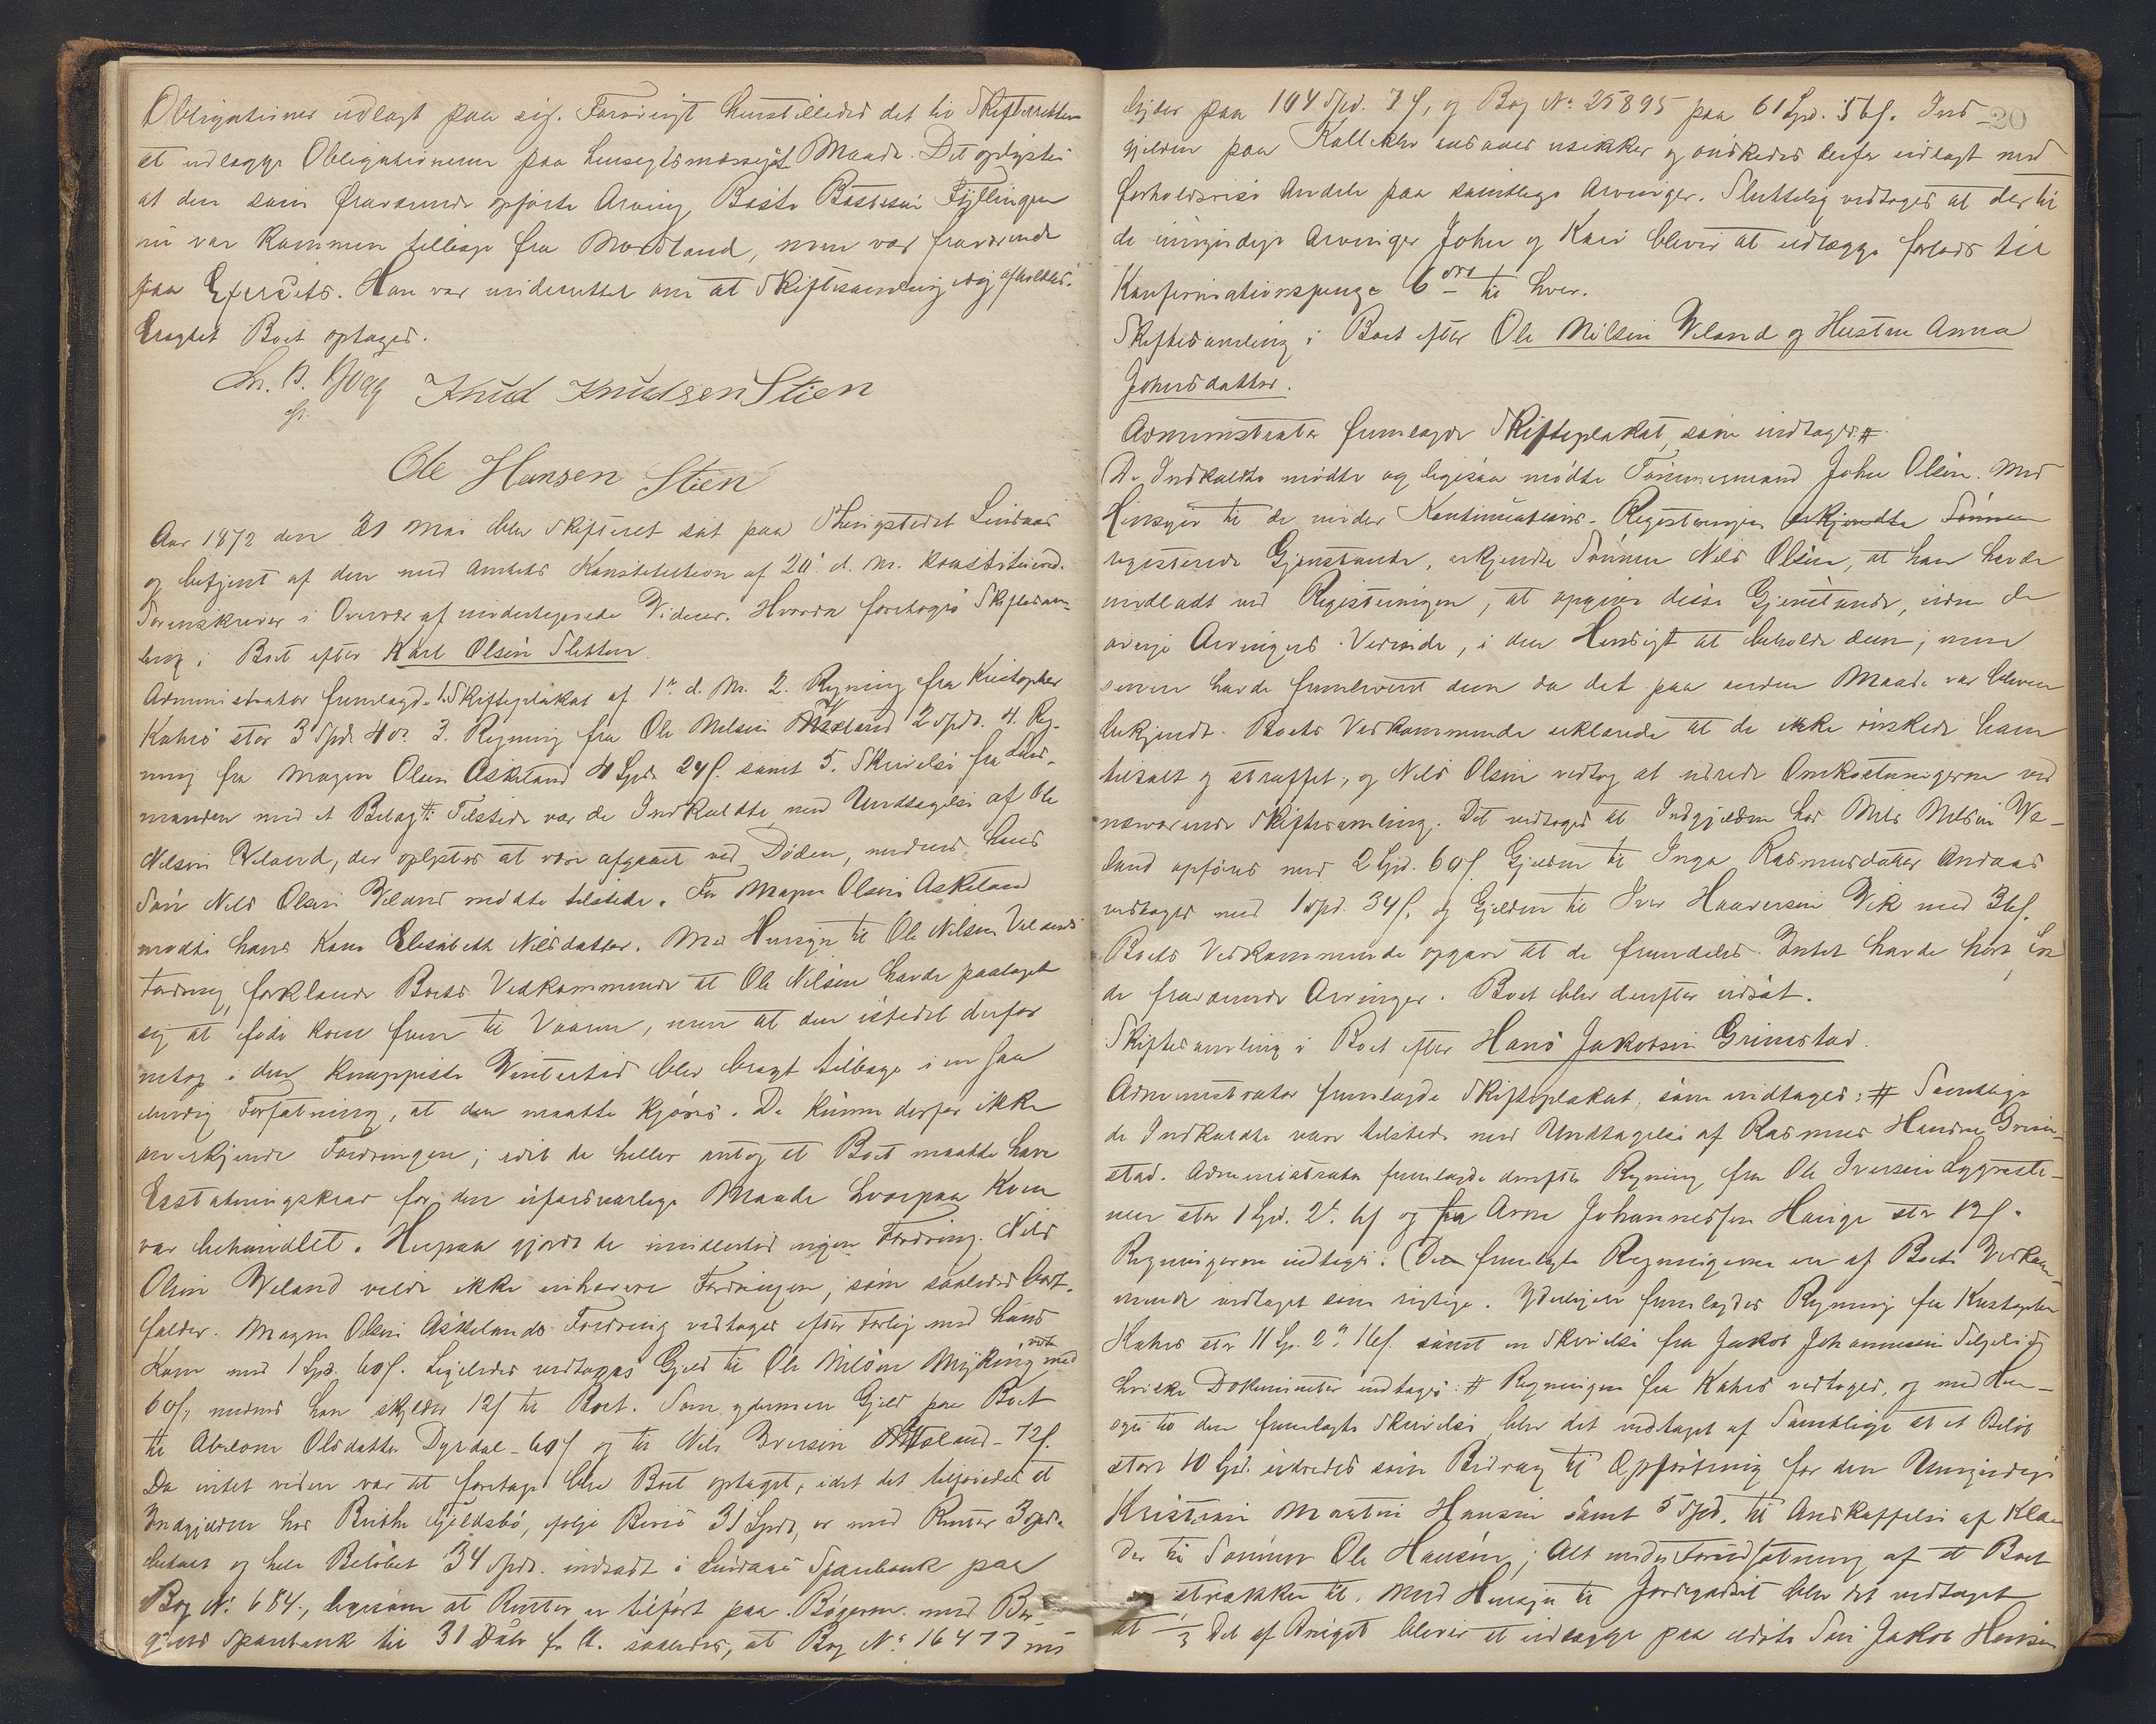 Obligationer udlagt paa sig. Forøvrigt henstilledes det til Skifteretten
at udlægge Obligationerne paa hensigtsmæssigst Maade. Det oplystes
at den som fraværende opførte Arving Baste Bastesen Fyllingen
nu var kommen tilbage fra Nordland, men var fraværende
paa Exercits. Han var underrettet om at Skiftesamling idag afholdtes.
Eragtet Boet optages.
Knud Knudsen Stien
Ole Hansen Stien
Aar 1872 den 31 Mai blev Skifteret sat paa Thingstedet Lindaas
og betjent af den med Amtets Konstitution af 20 d. M. konstituered.
Sorenskriver i Overvær af undertegnede Vidner. Hvorda foretoges Skiftesam-
ling i Boet efter Kari Olsen Sletten.
Administrator fremlagde 1. Skifteplakat af 1ste d. M. 2. Regning fra Kristopher
Kahrs stor 3 Spd. 4 or. 3. Regning fra Ole Nilsen Veland 2 Spd. 4. Reg-
ning fra Magne Olsen Askeland 4 Spd. 24 s. samt 5. Skrivelse fra Lens-
manden med et Bilag # Tilstede var de Indkaldte med Undtagelse af Ole
Nilsen Veland, der oplystes at være afgaaet ved Døden, medens hans
Søn Nils Olsen Veland mødte tilstede. For Magne Olsen Askeland
mødte hans Kone Elisabeth Nilsdatter. Med Hensyn til Ole Nilsen Velands
Fordring, forklarede Boets Vedkommende at Ole Nilsen havde paataget
sig at føde Koen frem til Vaaren, men at den istedet derfor
netop i den knappeste Vintertid blev bragt tilbage i en saa
elendig Forfatning, at den maatte kjøres. De kunne derfor ikke
anerkjende Fordringen; idet de heller antog at Boet maatte have
Erstatningskrav for den uforsvarlige Maade hvorpaa Koen
var behandlet. Herpaa gjorde de imidlertid ingen Fordring. Nils
Olsen Veland vilde ikke inhærere Fordringen, som saaledes bort-
falder. Magne Olsen Askelands Fordring vedtages efter Forlig med hans
Kone med 1 Spd. 60 s. Ligeledes vedtages Gjeld til Ole Nilsen Myking med
60 s., medens han skylder 12 s. til Boet. Som ydermere Gjeld paa Boet
til Abelone Olsdatter Dyrdal - 60 s. og til Nils Iversen - 72 s.
Da intet videre var at foretage blev Boet optaget, idet det tilføiedes at
Indgjelden hos Fjeldsbø, ifølge Bevis 31 Spd., er med Renter 3 Spd.
betalt og hele Beløbet 34 Spd. indsadt i Lindaas Sparebank paa
Bog N: 684., ligesom at Renter er tilført paa Bøgerne med Ber-
gens Sparebank til 31 Dcbr f. A. saaledes, at Bog N: 16477 nu
20
lyder paa 104 Spd. 7 s., og Bog N: 25895 paa 61 Spd. 56 s. Ind-
gjelden paa Kalleklev ansaaes usikker og ønskedes derfor udlagt med
forholdsvise Andele paa samtlige Arvinger. Sluttelig vedtoges at der til
de umyndige Arvinger John og Kari bliver at udlægge forlods til
Konfirmationspenge 6 Spd. til hver.
Skiftesamling i Boet efter Ole Nilsen Veland og Hustru Anna
Johnsdatter.
Administrator fremlagde Skifteplakat, som indtages #
De Indkaldte mødte og ligesaa mødte Tømmermand John Olsen. Med
Hensyn til de under Kontinuations-Registeringen erkjendte Sønnen
registerede Gjenstande, erkjendte Sønnen Nils Olsen, at han havde
undladt ved Registeringen, at opgive disse Gjenstande, uden de
øvrige Arvingers Vidende, i den Hensigt at beholde dem; men
senere havde fremleveret dem da det paa anden Maade var bleven
bekjendt. Boets Vedkommende erklærede at de ikke ønskede ham
tiltalt og straffet, og Nils Olsen vedtog at udrede Omkostningerne ved
nærværende Skiftesamling. Det vedtoges at Indgjelden hos Nils Nilsen Ve-
land opføres med 2 Spd. 60 s. Gjelden til Inga Rasmusdatter Andaas
vedtoges med 1 Spd. 34 s. og Gjelden til Iver Haaversen Vik med 36 s.
Boets Vedkommende opgav at de fremdeles Intet havde hørt fra
de fraværende Arvinger. Boet blev derefter udsat.
Skiftesamling i Boet efter Hans Jakobsen Grimstad.
Administrator fremlagde Skifteplakat, som indtages: # Samtlige
de Indkaldte vare tilstede med Undtagelse af Rasmus Hansen Grim-
stad. Administrator fremlagde derefter Regning fra Ole Iversen Lygreste-
nen stor 1 Spd. 2 t. 6 s. og fra Arne Johannessen Hauge stor 12 s.
Regningerne indtages: (De fremlagte Regningerne ere af Boets Vedkom-
mende vedtaget som rigtige. Yderligere fremlagdes Regning fra Kristopher
Kahrs stor 11 Sp. 2 or 16 s. samt en Skrivelse fra Jakob Johannessen
hvilke Dokumenter indtages: # Regningen fra Kahrs vedtoges, og med Hen-
syn til den fremlagte Skrivelse, blev det vedtaget af Samtlige at et Beløb
stort 10 Spd. udredes som Bidrag til Opfostring for den Umyndige
Kristian Martin Hansen samt 5 Spd. til Anskaffelse af Klæ-
der til Sønnen Ole Hansen; Alt under Forudsætning af at Boet
strækker til. Med Hensyn til Jordegodset blev det vedtaget
at 1/3 Del af Bruget bliver at udlægge paa ældste Søn Jakob Hansen